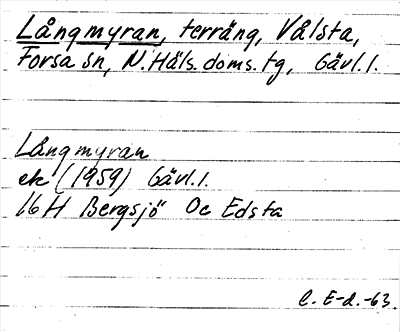 Långmyran, terräng, Vålsta,
Forsa sn, N. Häls. doms. tg, Gävl. l.
Långmyran
ek (1959) Gävl. l.
16 H Bergsjö Oc Edsta
C. E-d. -63.